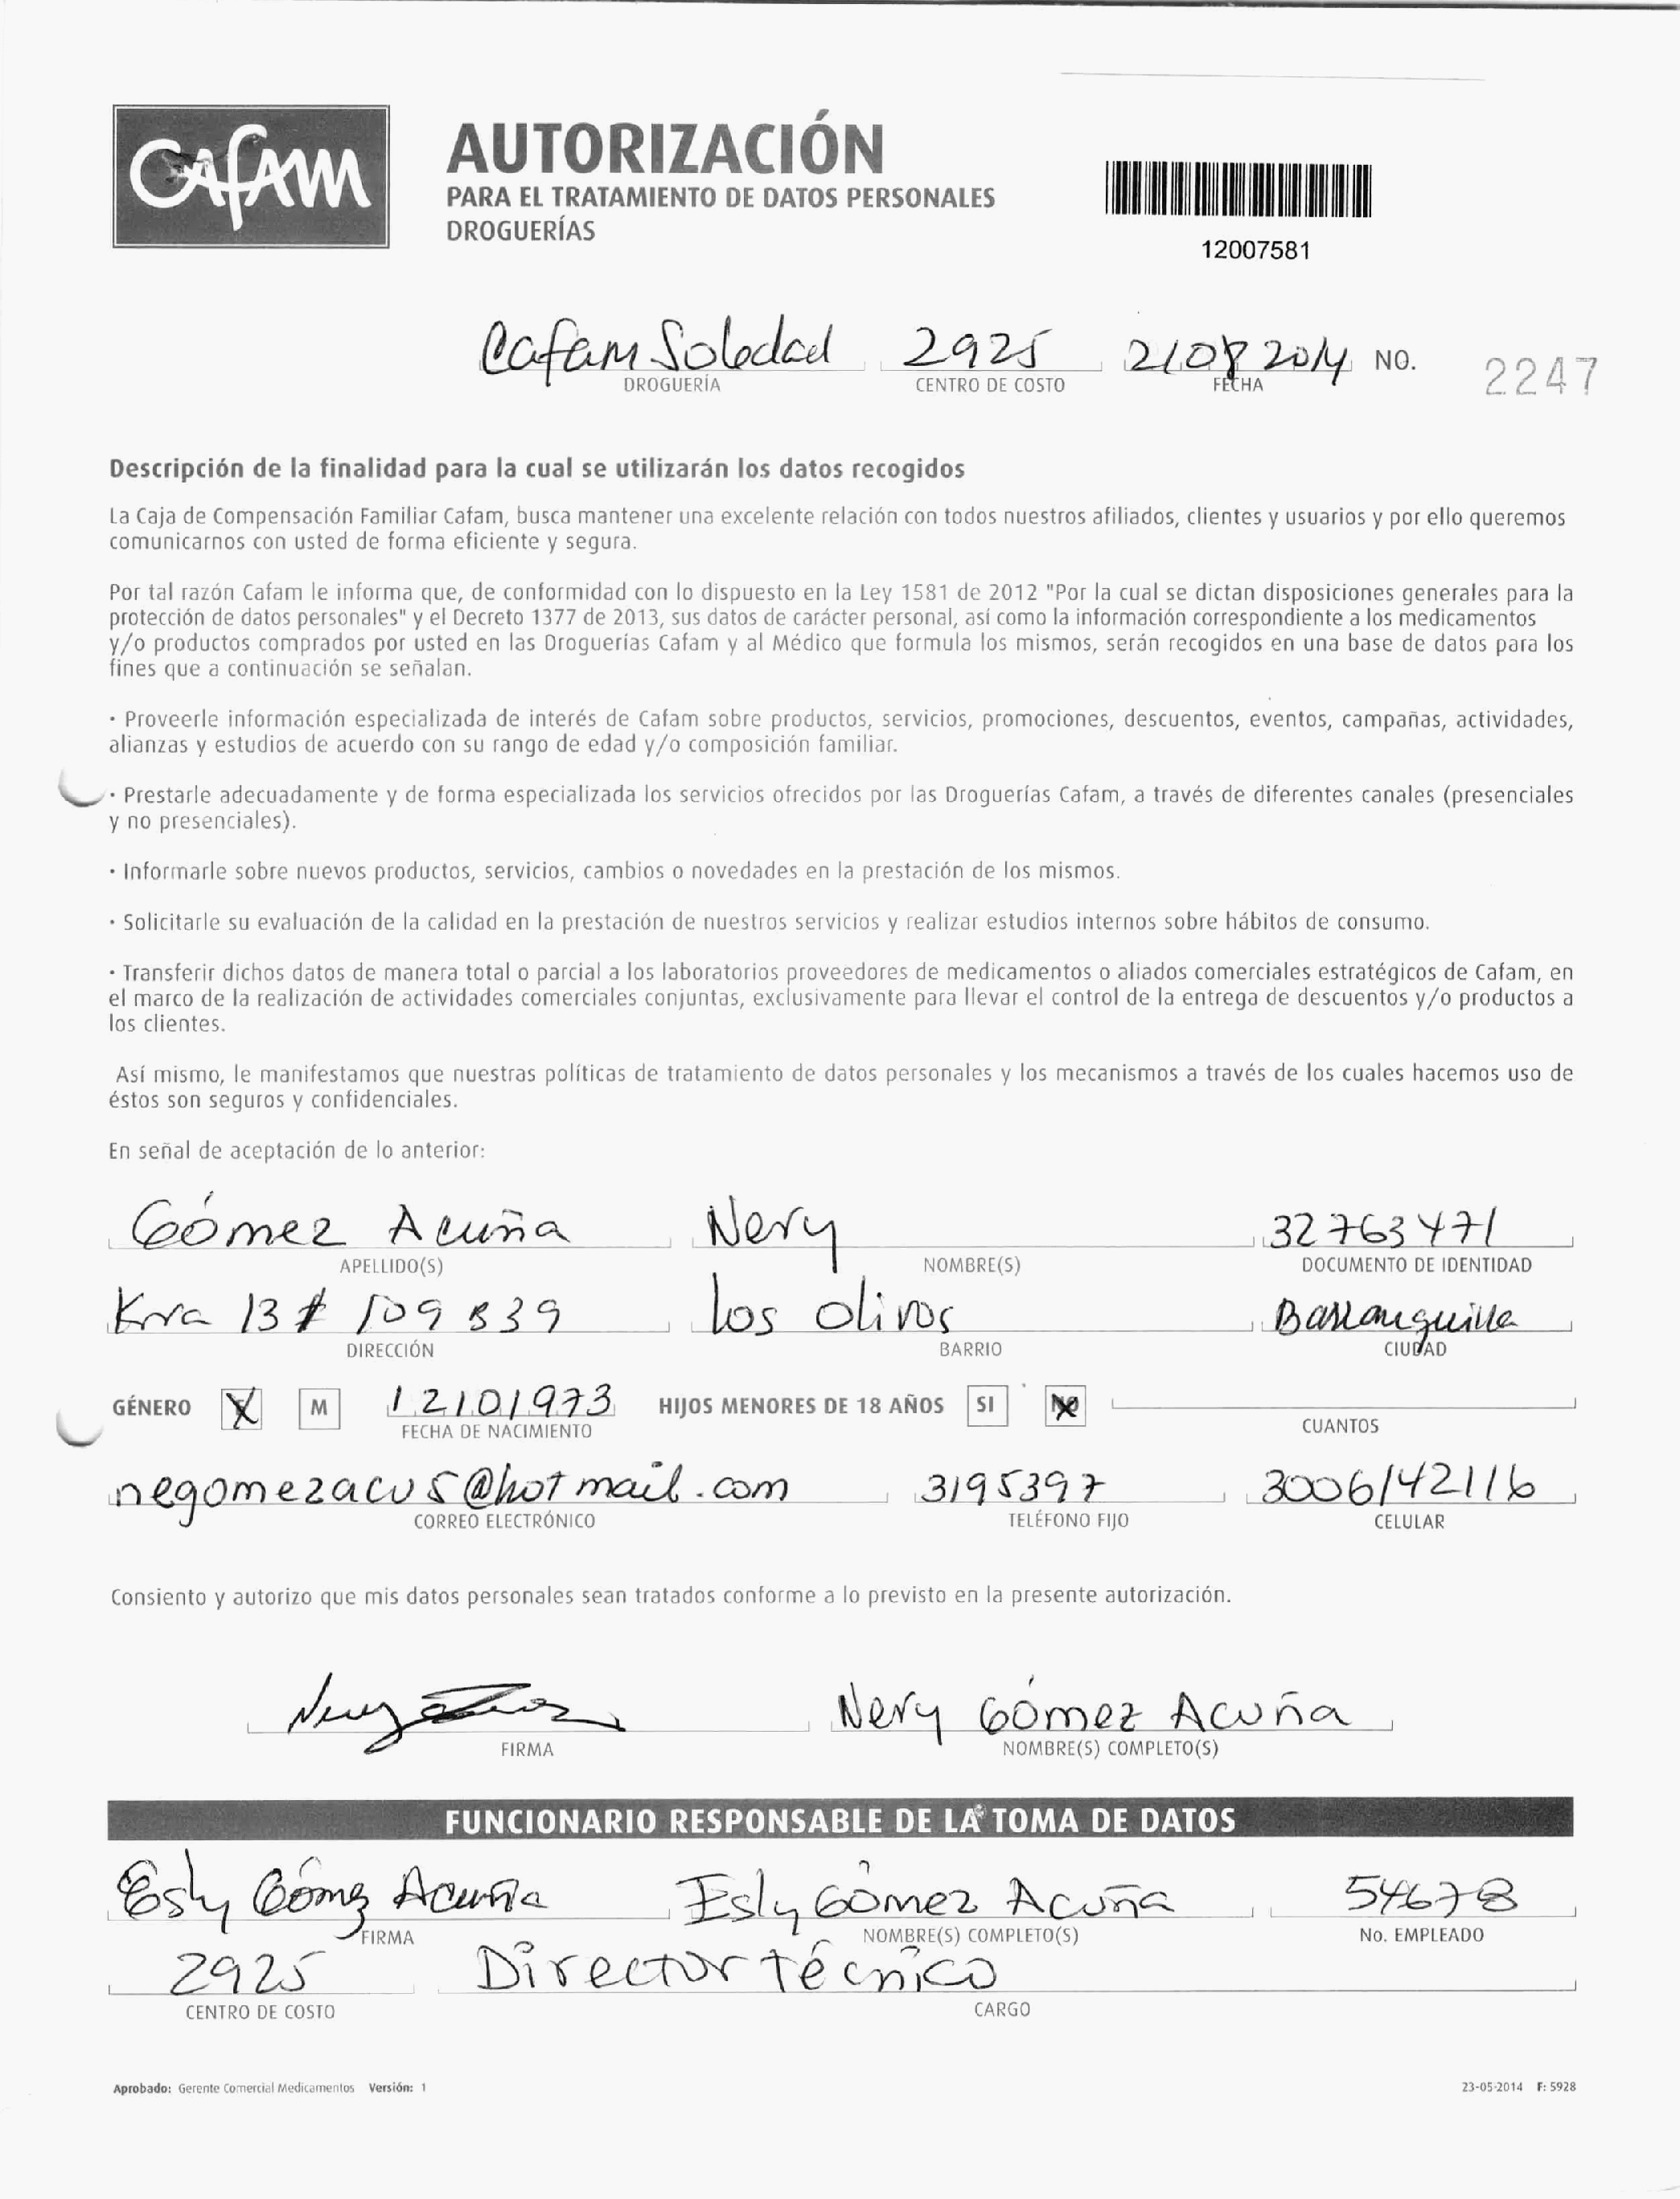 Cafam
AUTORIZACIÓN
PARA EL TRATAMIENTO DE DATOS PERSONALES
DROGUERÍAS
12007581
Cafam Soledad 2925 21 08 2014 NO. 2247
DROGUERÍA CENTRO DE COSTO FECHA
Descripción de la finalidad para la cual se utilizarán los datos recogidos
La Caja de Compensación Familiar Cafam, busca mantener una excelente relación con todos nuestros afiliados, clientes y usuarios y por ello queremos
comunicarnos con usted de forma eficiente y segura.
Por tal razón Cafam le informa que, de conformidad con lo dispuesto en la Ley 1581 de 2012 "Por la cual se dictan disposiciones generales para la
protección de datos personales" y el Decreto 1377 de 2013, sus datos de carácter personal, así como la información correspondiente a los medicamentos
y/o productos comprados por usted en las Droguerías Cafam y al Médico que formula los mismos, serán recogidos en una base de datos para los
fines que a continuación se señalan.
· Proveerle información especializada de interés de Cafam sobre productos, servicios, promociones, descuentos, eventos, campañas, actividades,
alianzas y estudios de acuerdo con su rango de edad y/o composición familiar.
· Prestarle adecuadamente y de forma especializada los servicios ofrecidos por las Droguerías Cafam, a través de diferentes canales (presenciales
y no presenciales).
· Informarle sobre nuevos productos, servicios, cambios o novedades en la prestación de los mismos.
· Solicitarle su evaluación de la calidad en la prestación de nuestros servicios y realizar estudios internos sobre hábitos de consumo.
· Transferir dichos datos de manera total o parcial a los laboratorios proveedores de medicamentos o aliados comerciales estratégicos de Cafam, en
el marco de la realización de actividades comerciales conjuntas, exclusivamente para llevar el control de la entrega de descuentos y/o productos a
los clientes.
Así mismo, le manifestamos que nuestras políticas de tratamiento de datos personales y los mecanismos a través de los cuales hacemos uso de
éstos son seguros y confidenciales.
En señal de aceptación de lo anterior:
Gómez Acuña Nery 32763471
APELLIDO(S) NOMBRE(S) DOCUMENTO DE IDENTIDAD
Kra 13 # 109 B 39 los olivos Barranquilla
DIRECCIÓN BARRIO CIUDAD
GÉNERO X M 12101973 HIJOS MENORES DE 18 AÑOS SI NO
FECHA DE NACIMIENTO CUANTOS
negomezacu5@hotmail.com 3195397 3006142116
CORREO ELECTRÓNICO TELÉFONO FIJO CELULAR
Consiento y autorizo que mis datos personales sean tratados conforme a lo previsto en la presente autorización.
Nery Gómez Acuña
FIRMA NOMBRE(S) COMPLETO(S)
FUNCIONARIO RESPONSABLE DE LA TOMA DE DATOS
Esly Gómez Acuña Esly Gómez Acuña 54678
FIRMA NOMBRE(S) COMPLETO(S) No. EMPLEADO
2925 Director técnico
CENTRO DE COSTO CARGO
Aprobado: Gerente Comercial Medicamentos Versión: 1 23-05-2014 F: 5928